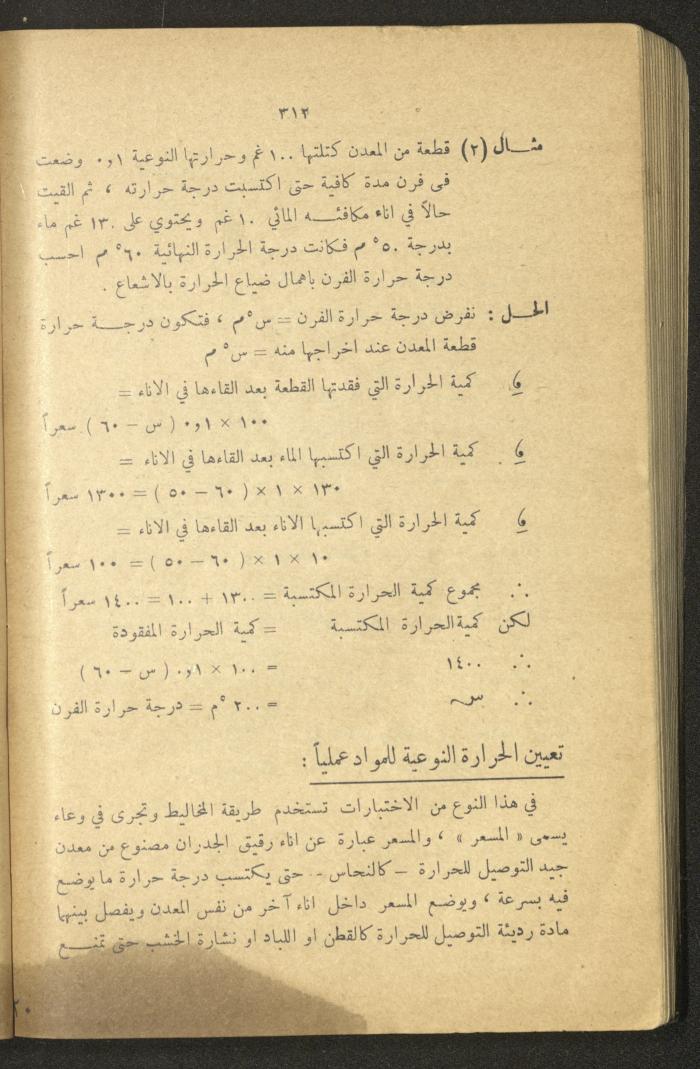 ٣١٢
مثـــال (٢) قطعة من المعدن كتلتها ١٠٠ غم وحرارتها النوعية ٠,١ وضعت
فى فرن مدة كافية حتى اكتسبت درجة حرارته ، ثم القيت
حالاً في اناء مكافئــه المائي ١٠ غم ويحتوي على ١٣٠ غم ماء
بدرجة ٥٠° م فكانت درجة الحرارة النهائية ٦٠° م احسب
درجة حرارة الفرن باهمال ضياع الحرارة بالاشعاع .
الحـــل : نفرض درجة حرارة الفرن = س°م ، فتكون درجــة حرارة
قطعة المعدن عند اخراجها منه = س° م
و كمية الحرارة التي فقدتها القطعة بعد القاءها في الاناء =
١٠٠ × ٠,١ ( س – ٦٠ ) سعراً
و كمية الحرارة التي اكتسبها الماء بعد القاءها في الاناء =
١٣٠ × ١ × ( ٦٠ – ٥٠ ) = ١٣٠٠ سعراً
و كمية الحرارة التي اكتسبها الاناء بعد القاءها في الاناء =
١٠ × ١ × ( ٦٠ – ٥٠ ) = ١٠٠ سعراً
∴ مجموع كمية الحرارة المكتسبة = ١٣٠٠ + ١٠٠ = ١٤٠٠ سعراً
لكن كمية الحرارة المكتسبة = كمية الحرارة المفقودة
∴ ١٤٠٠ = ١٠٠ × ٠,١ ( س – ٦٠ )
∴ س = ٢٠٠ °م = درجة حرارة الفرن
تعيين الحرارة النوعية للمواد عملياً :
في هذا النوع من الاختبارات تستخدم طريقة المخاليط وتجرى في وعاء
يسمى « المسعر » ، والمسعر عبارة عن اناء رقيق الجدران مصنوع من معدن
جيد التوصيل للحرارة – كالنحاس – حتى يكتسب درجة حرارة ما يوضع
فيه بسرعة ، ويوضع المسعر داخل اناء آخر من نفس المعدن ويفصل بينهما
مادة رديئة التوصيل للحرارة كالقطن او اللباد او نشارة الخشب حتى تمنــع